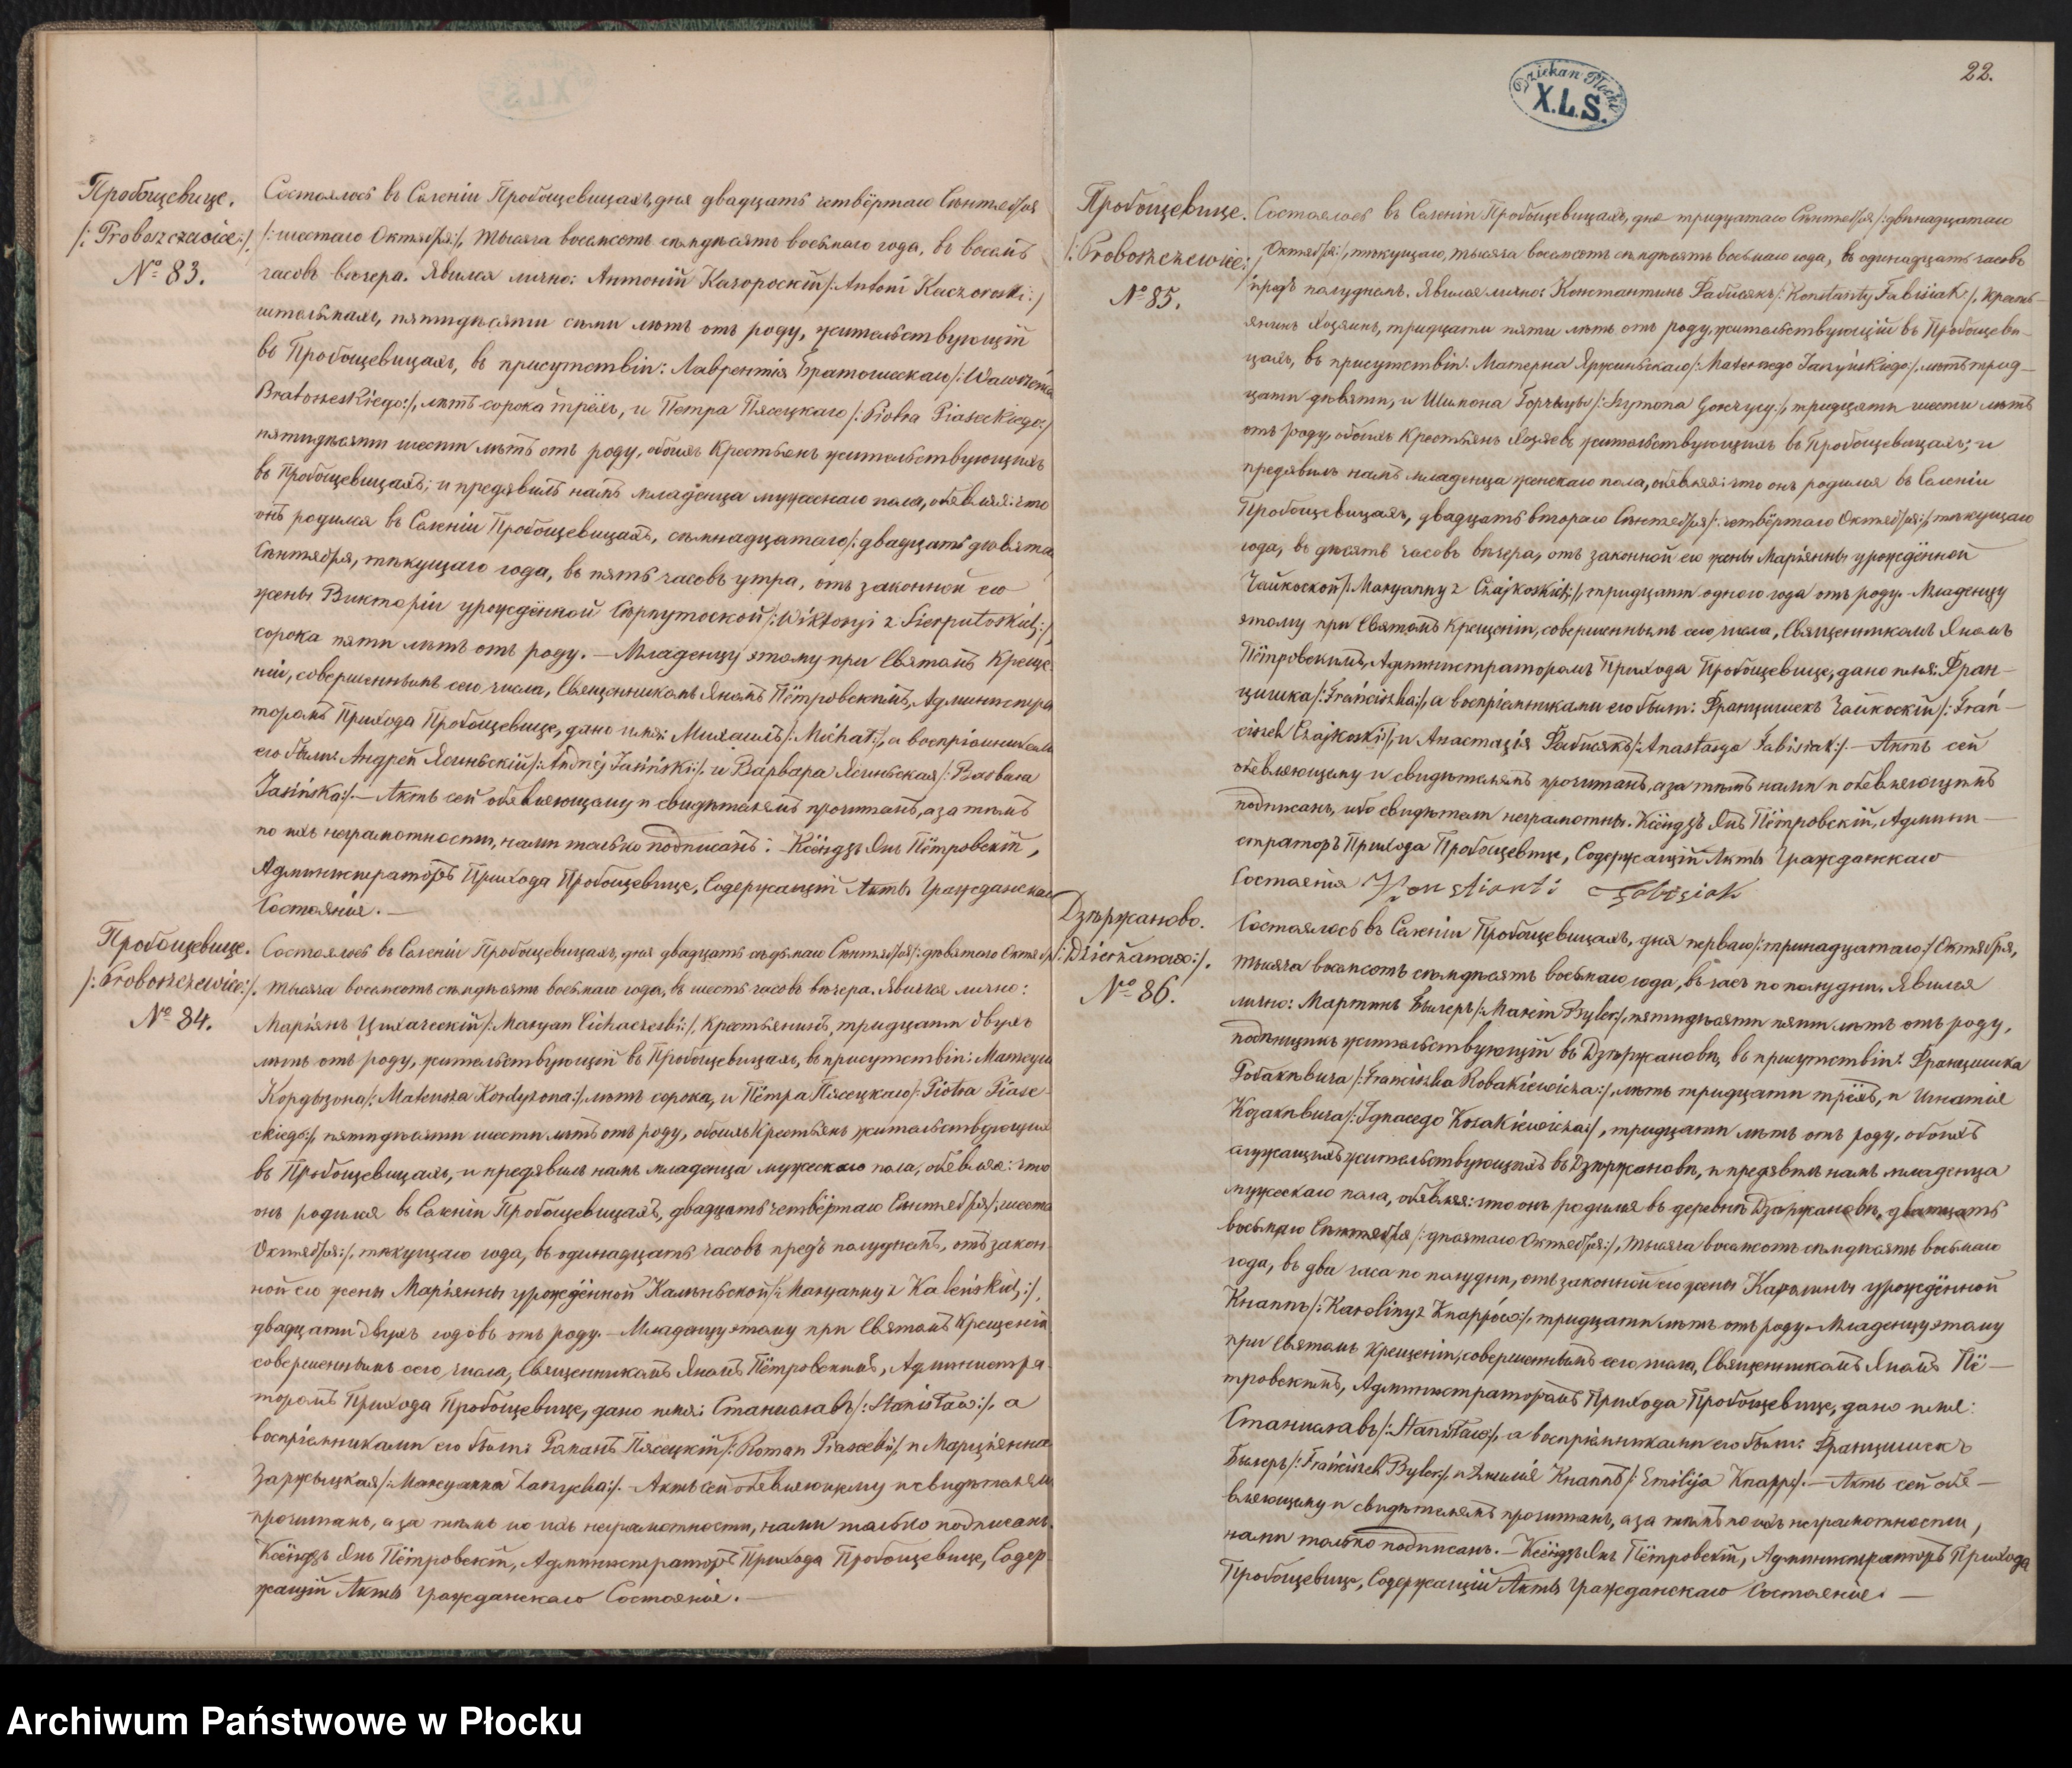 Пробощевице.
/: Proboszczewice :/
№ 83.
Состоялось въ Селеніи Пробощевицахъ, дня двадцать четвёртаго Сентября
/: шестаго Октября :/, тысяча восемсотъ семдесятъ восьмаго года, въ восемь
часовъ вечера. Явился лично: Антоній Качороскій /: Antoni Kaczoroski :/
пятидесяти семи лѣтъ отъ роду, жительствующій
въ Пробощевицахъ, въ присутствіи: Лаврентія Братошескаго /: Wawrzeńca
Bratoszeskiego :/, лѣтъ сорока трёхъ, и Петра Пясецкаго /: Piotra Piaseckiego :/
пятидесяти шести лѣтъ отъ роду, обоихъ Крестьянъ жительствующихъ
въ Пробощевицахъ; и предявилъ намъ младенца мужескаго пола, обявляя: что
онъ родился въ Селеніи Пробощевицахъ, семнадцатаго /: двадцать девята
Сентября, текущаго года, въ пять часовъ утра, отъ законной его
жены Викторіи урождённой Серпутоской /: Wiktoryi z Sierputoskich :/,
сорока пяти лѣтъ отъ роду. — Младенцу этому при Святомъ Креще
ніи, совершенномъ сего числа, Священникомъ Яномъ Пётровскимъ, Администра
торомъ Прихода Пробощевице, дано имя: Михаилъ /: Michał :/, а воспріемниками
его были: Андрей Ясиньскій /: Andrzej Jasiński :/ и Варвара Ясиньская /: Barbara
Jasińska :/. — Актъ сей обявляющему и свидѣтелямъ прочитанъ, а за тѣмъ
по ихъ неграмотности, нами только подписанъ: — Ксёндзъ Янъ Пётровскій,
Администраторъ Прихода Пробощевице, Содержащій Акты Гражданскаго
Состоянія. —
Пробощевице.
/: Proboszczewice :/.
№ 84.
Состоялось въ Селеніи Пробощевицахъ, дня двадцать седьмаго Сентября /: девятаго Октября
тысяча восемсотъ семдесятъ восьмаго года, въ шесть часовъ вечера. Явился лично:
Маріянъ Цихаческій /: Maryan Cichaczeski :/, Крестьянинъ, тридцати двухъ
лѣтъ отъ роду, жительствующій въ Пробощевицахъ, въ присутствіи: Матеуша
Кордызона /: Mateusza Kordyzona :/ лѣтъ сорока, и Пётра Пясецкаго /: Piotra Piase-
ckiego :/, пятидесяти шести лѣтъ отъ роду, обоихъ Крестьянъ жительствующихъ
въ Пробощевицахъ, и предявилъ намъ младенца мужескаго пола, обявляя: что
онъ родился въ Селеніи Пробощевицахъ, двадцать четвёртаго Сентября /: шеста
Октября :/, текущаго года, въ одинадцать часовъ предъ полуднемъ, отъ закон
ной его жены Маріянны урождённой Каленьской /: Maryanny z Kaleńskich :/,
двадцати двухъ годовъ отъ роду. — Младенцу этому при Святомъ Крещеніи
совершенномъ сего числа, Священникомъ Яномъ Пётровскимъ, Администра-
торомъ Прихода Пробощевице, дано имя: Станиславъ /: Stanisław :/, а
воспріемниками его были: Романъ Пясецкій /: Roman Piasecki :/ и Маріянна
Заржыцкая /: Maryanna Zarzycka :/. — Актъ сей обявляющему и свидѣтелямъ
прочитанъ, а за тѣмъ по ихъ неграмотности, нами только подписанъ.
Ксёндзъ Янъ Пётровскій, Администраторъ Прихода Пробощевице, Содер-
жащій Акты Гражданскаго Состоянія. —
Dziekan Płocki
X.L.S.
22.
Пробощевице.
/: Proboszczewice :/
№ 85.
Состоялось въ Селеніи Пробощевицахъ, дня тридцатаго Сентября /: двенадцатаго
Октября :/, текущаго, тысяча восемсотъ семдесятъ восьмаго года, въ одинадцать часовъ
предъ полуднемъ. Явился лично: Константинъ Фабисякъ /: Konstanty Fabisiak :/, Кресть-
янинъ Хозяинъ, тридцати пяти лѣтъ отъ роду, жительствующій въ Пробощеви-
цахъ, въ присутствіи: Матерна Яржиньскаго /: Maternego Jarzyńskiego :/, лѣтъ трид-
цати девяти, и Шимона Горчыцы /: Szymona Gorczycy :/, тридцати шести лѣтъ
отъ роду, обоихъ Крестьянъ Хозяевъ жительствующихъ въ Пробощевицахъ; и
предявилъ намъ младенца женскаго пола, обявляя: что онъ родился въ Селеніи
Пробощевицахъ, двадцать втораго Сентября /: четвёртаго Октября :/, текущаго
года, въ десять часовъ вечера, отъ законной его жены Маріянны урождённой
Чайкоской /: Maryanny z Czajkoskich :/, тридцати одного года отъ роду. Младенцу
этому при Святомъ Крещеніи, совершенномъ сего числа, Священникомъ Яномъ
Пётровскимъ, Администраторомъ Прихода Пробощевице, дано имя: Фран-
цишка /: Franciszka :/, а воспріемниками его были: Францишекъ Чайкоскій /: Fran-
ciszek Czajkoski :/, и Анастазія Фабисякъ /: Anastazya Fabisiak :/. — Актъ сей
обявляющему и свидѣтелямъ прочитанъ, а за тѣмъ нами и обявляющимъ
подписанъ, ибо свидѣтели неграмотны. Ксёндзъ Янъ Пётровскій, Админи-
страторъ Прихода Пробощевице, Содержащій Акты Гражданскаго
Состоянія Konstianti Fabisiak
Дзержаново.
/: Dzierżanowo :/.
№ 86.
Состоялось въ Селеніи Пробощевицахъ, дня перваго /: тринадцатаго :/ Октября,
тысяча восемсотъ семдесятъ восьмаго года, въ часъ по полудни. Явился
лично: Мартинъ Былеръ /: Marcin Byler :/, пятидесяти пяти лѣтъ отъ роду,
жительствующій въ Дзержановѣ, въ присутствіи: Францишка
Робакевича /: Franciszka Robakiewicza :/, лѣтъ тридцати трёхъ, и Игнатія
Козакевича /: Ignacego Kozakiewicza :/, тридцати лѣтъ отъ роду, обоихъ
служащихъ жительствующихъ въ Дзержановѣ, и предявилъ намъ младенца
мужескаго пола, обявляя: что онъ родился въ деревнѣ Дзержановѣ, двадцать
восьмаго Сентября /: десятаго Октября :/, тысяча восемсотъ семдесятъ восьмаго
года, въ два часа по полудни, отъ законной его жены Каролины урождённой
Кнаппъ /: Karoliny z Knappów :/, тридцати лѣтъ отъ роду. Младенцу этому
при Святомъ Крещеніи, совершенномъ сего числа, Священникомъ Яномъ Пё-
тровскимъ, Администраторомъ Прихода Пробощевице, дано имя:
Станиславъ /: Stanisław :/, а воспріемниками его были: Францишекъ
Былеръ /: Franciszek Byler :/, и Эмилія Кнаппъ /: Emilija Knapp :/. — Актъ сей обя-
вляющему и свидѣтелямъ прочитанъ, а за тѣмъ по ихъ неграмотности,
нами только подписанъ. — Ксёндзъ Янъ Пётровскій, Администраторъ Прихода
Пробощевице, Содержащій Акты Гражданскаго Состоянія. —
Archiwum Państwowe w Płocku